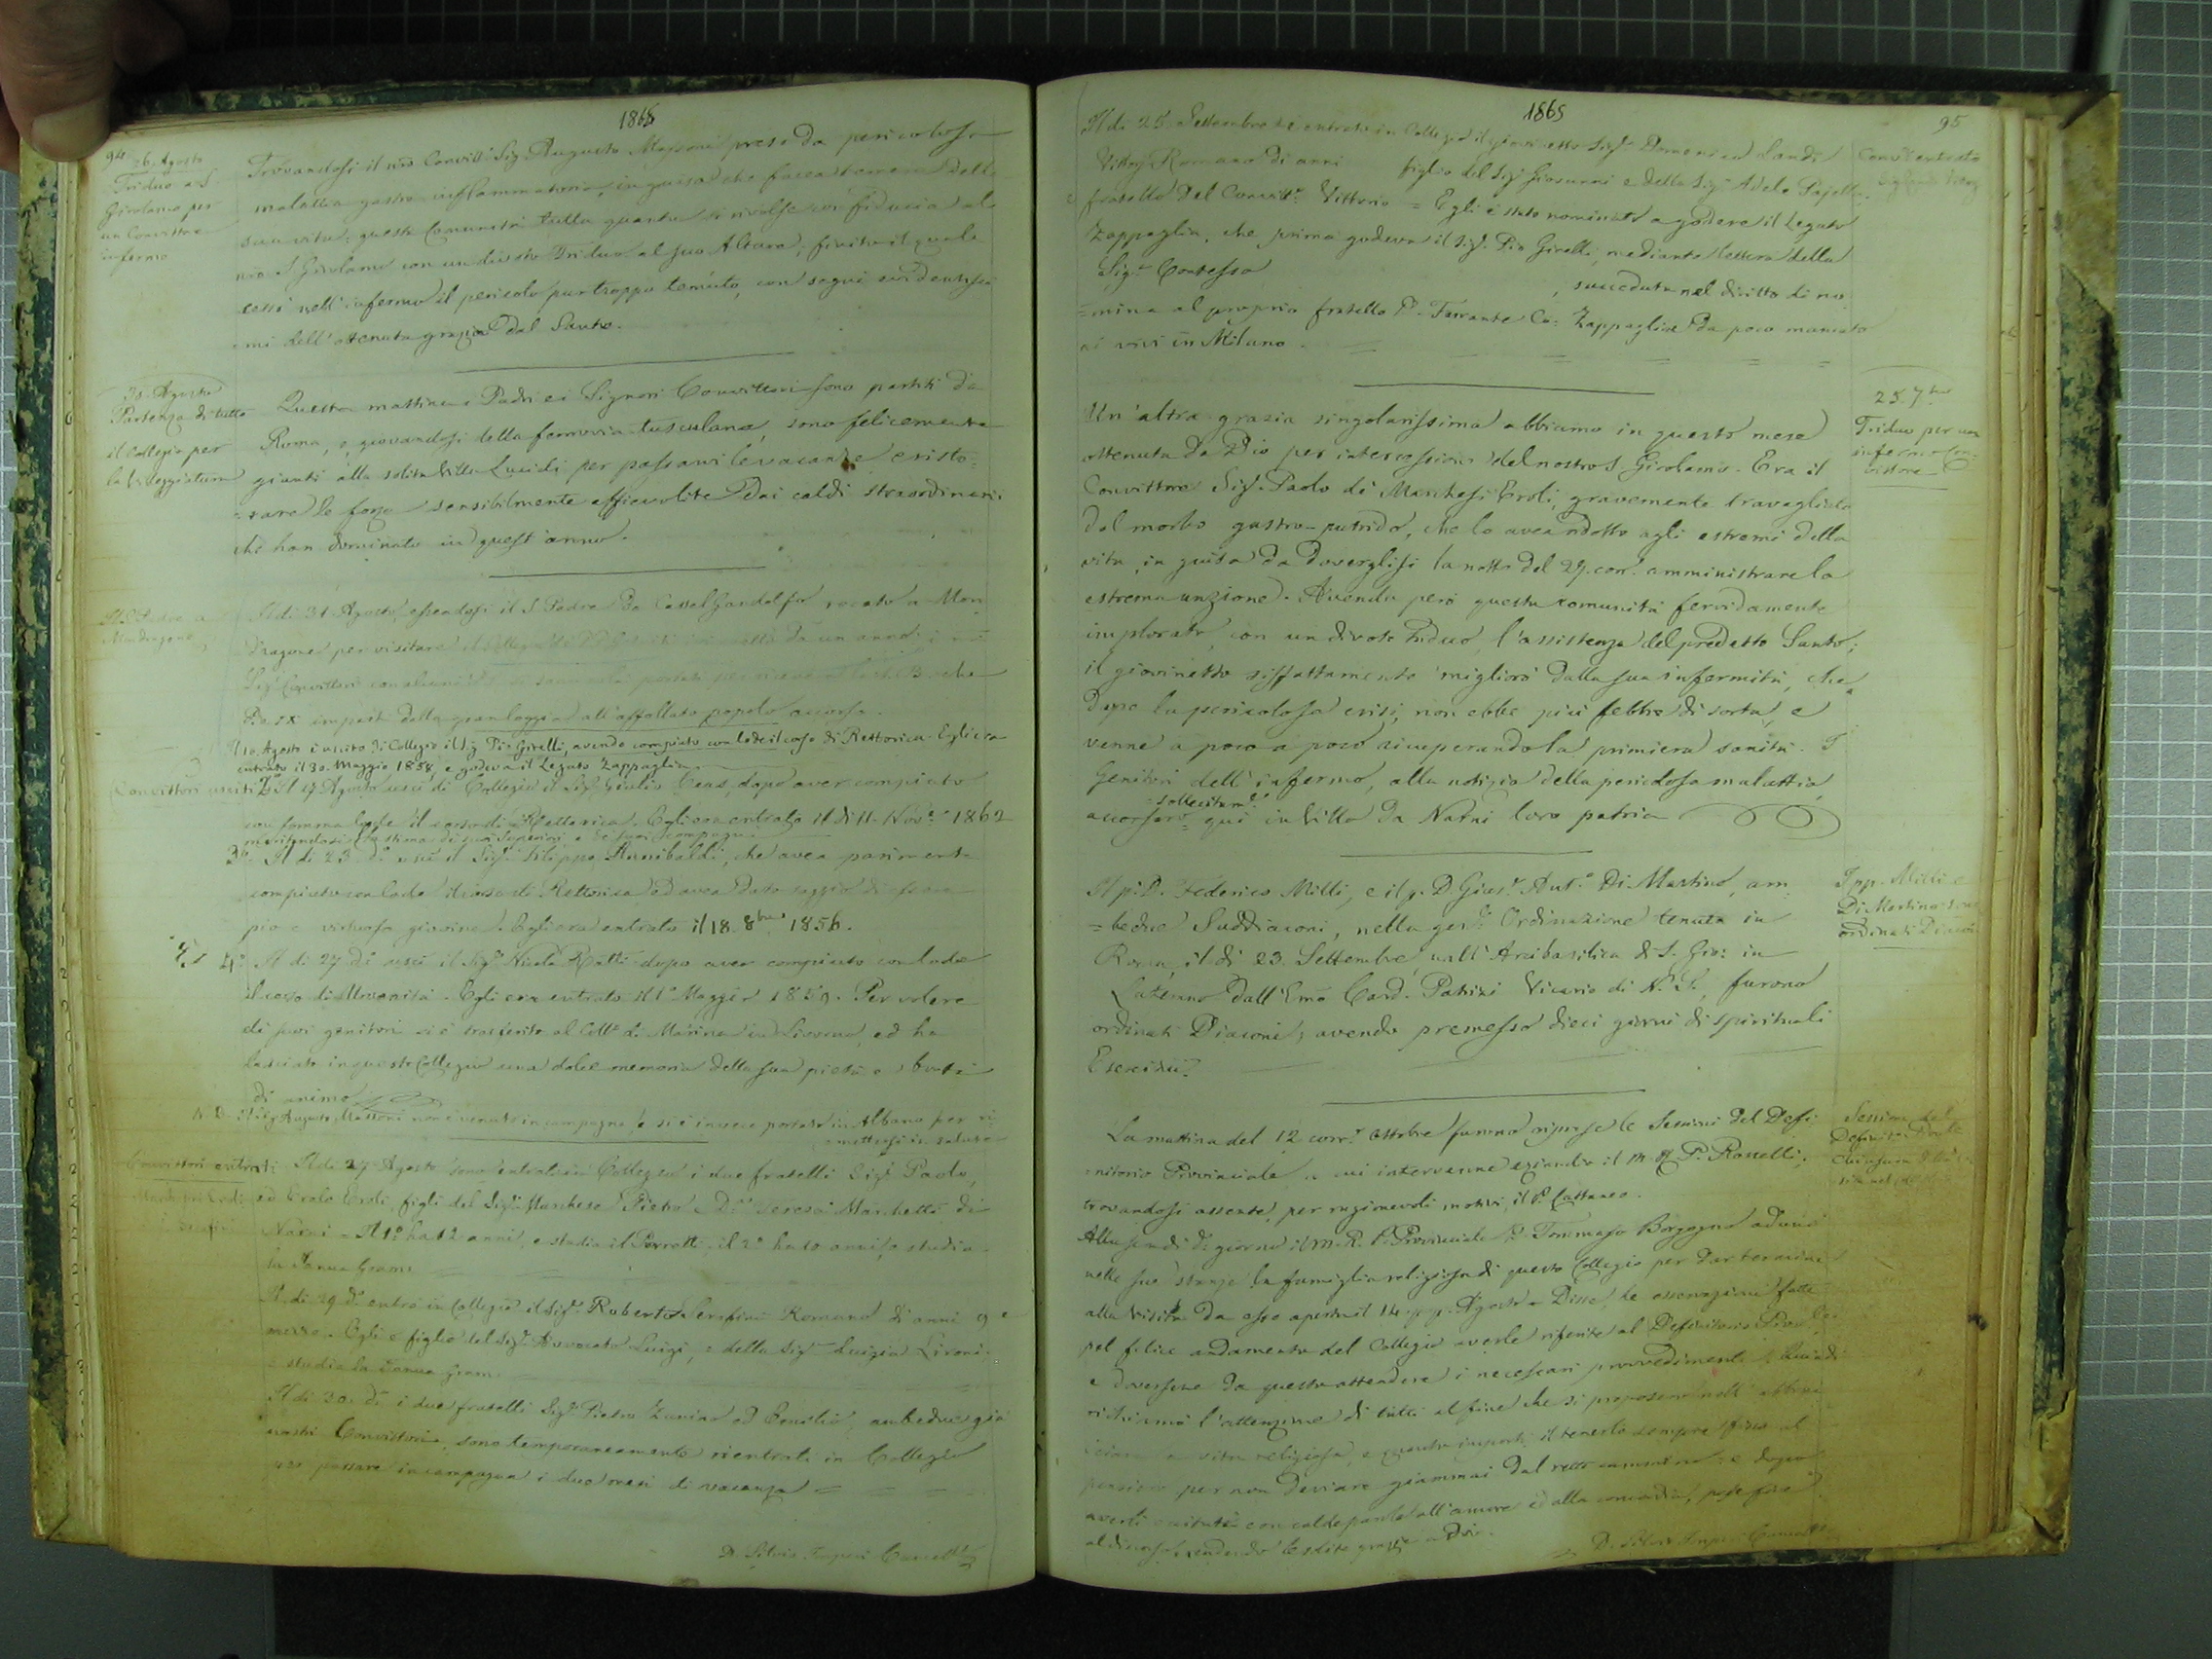 1865
94
26. Agosto
Triduo a S.
Girolamo per
un Convittore
infermo
Trovandosi il nro Convitt. Sig. Augusto Massoni preso da pericolosa
malattia gastro-inflammatoria, in guisa che facea temere della
sua vita; questa Comunità tutta quanta si rivolse con fiducia al
nro S. Girolamo con un divoto Triduo al suo Altare; finito il quale
cessò nell'infermo il pericolo purtroppo temuto, con segni evidentissi
=mi dell'ottenuta grazia dal Santo.
30. Agosto
Partenza di tutto
il Collegio per
la Villeggiatura
Questa mattina i Padri e i Signori Convittori sono partiti da
Roma, e, giovandosi della ferrovia tusculana, sono felicemente
giunti alla solita Villa Lucidi per passarvi le vacanze, e risto=
=rare le forze sensibilmente affievolite dai caldi straordinari
che han dominato in quest'anno.
Il S. Padre a
Mondragone
Il dì 31. Agosto, essendosi il S. Padre da Castel Gandolfo recato a Mon
dragone per visitare il Collegio da un anno i nri
Sig. Convittori con alcuni portati per ricevere la che
Pio IX impartì dalla gran loggia all'affollato popolo accorso.
Il 10. Agosto è uscito di Collegio il Sig. Pio Girelli, avendo compiuto con lode il corso di Rettorica. Egli era
entrato il 30. Maggio 1858, e godeva il Legato Zappaglia
Convittori usciti
2° Il 27 Agosto uscì di Collegio il Sig. Giulio Ceas, dopo aver compiuto
con somma lode il corso di Rettorica. Egli era entrato il dì 11. Nov.e 1862
meritandosi la stima di suoi Superiori, e de' suoi compagni.
3° Il dì 23. d.° uscì il Sig. Filippo Annibaldi, che avea pariment
compiuto con lode il corso di Rettorica, ed avea dato saggio di
pio e virtuoso giovine. Egli era entrato il 18. 8bre 1856.
4° Il dì 27 d.° uscì il Sig. Nicola Ratti dopo aver compiuto con lode
il corso di Umanità. Egli era entrato il 1° Maggio 1859. Per volere
de' suoi genitori si è trasferito al Coll.° di Marina in Livorno, ed ha
lasciato in questo Collegio una dolce memoria della sua pietà e bontà
di animo
N.B. Il Sig. Augusto Massoni non è venuto in campagna, e si è invece portato in Albano per ri
=mettersi in salute
Convittori entrati
Il dì 27 Agosto sono entrati in Collegio i due fratelli Sig. Paolo,
ed Eroli, figli del Sig. Marchese Pietro e D.a Teresa Marchetti di
Narni. Il 1° ha 12 anni, e studia il Porretti, il 2° ha 10 anni, e studia
la Janua Gram.
Il dì 29 d.° entrò in Collegio il Sig. Roberto Serafini Romano di anni 9 e
mezzo. Egli è figlio del Sig. Avvocato Luigi, e della Sig. Luigia Lironi.
e studia la Janua Gram.
Il dì 30. d.° i due fratelli Sig. Pietro ed ambedue già
nostri Convittori, sono temporaneamente rientrati in Collegio
per passare in campagna i due mesi di vacanza
D. Silvio Imperi Cancell.e
1865
95
Il dì 25. Settembre è entrato in Collegio il giovinetto Sig. Domenico Landi
Vittorj Romano di anni figlio del Sig. Giovanni e della Sig. Adele Pajella
e fratello del Convitt.e Vittorio = Egli è stato nominato a godere il Legato
Zappaglia, che prima godeva il Sig. Pio Girelli, mediante lettera della
Sig. Contessa , succeduta nel diritto di no
=mina al proprio fratello Ferrante Co: Zappaglia da poco mancato
ai vivi in Milano.
Convitt. entrato
25. 7bre
Triduo per un
infermo Con=
vittore
Un'altra grazia singolarissima abbiamo in questo mese
ottenuta da Dio per intercessione del nostro S. Girolamo. Era il
Convittore Sig. Paolo de' Marchesi Eroli, gravemente travagliato
dal morbo gastro-putrido, che lo avea ridotto agli estremi della
vita, in guisa da doverglisi la notte del 29. corr. amministrare la
estrema unzione. Avendo però questa comunità fervidamente
implorato, con un divoto triduo, l'assistenza del predetto Santo;
il giovinetto siffattamente migliorò dalla sua infermità, che
dopo la pericolosa crisi, non ebbe più febbre di sorta, e
venne a poco a poco ricuperando la primiera sanità. I
Genitori dell'infermo, alla notizia della pericolosa malattia,
accorsero =sollecitam.e= qui in Villa da Narni loro patria
I pp. Milli e
Di Martino sono
ordinati Diaconi
Il p. D. Federico Milli, e il p. D. Gius.e Ant.o Di Martino, am
=bedue Suddiaconi, nella gen.le Ordinazione tenuta in
Roma, il dì 23. Settembre nell'Arcibasilica di S. Gio: in
Laterano dall'Emo Card. Patrizi Vicario di N. S., furono
ordinati Diaconi; avendo premesso dieci giorni di spirituali
Esercizii.
La mattina del 12 corr.e Ottobre furono riprese le Sessioni del Defi
=nitorio Provinciale a cui intervenne eziandio il P. Rosselli;
trovandosi assente, per ragionevoli motivi, il P. Cattaneo.
Alla sera di d.° giorno il M. R. P. Provinciale D. Tommaso Borgogno adunò
nelle sue stanze la famiglia religiosa di questo Collegio per dar termine
alla visita da esso aperta il 14. p.p. Agosto. Disse, le osservazioni fatte
pel felice andamento del Collegio averle riferite al Definitorio Prov.le
e doversene da questo attendere i necessari provvedimenti. Quindi
richiamò l'attenzione di tutti al fine che si proposero nell'abbrac
ciare la vita religiosa, e quanto importi il tenerlo sempre fisso al
pensiero per non deviare giammai dal retto cammino: e dopo
averli eccitati con calde parole all'amore ed alla concordia, pose fine
al discorso, rendendo le solite grazie a Dio.
D. Silvio Imperi Cancell.e